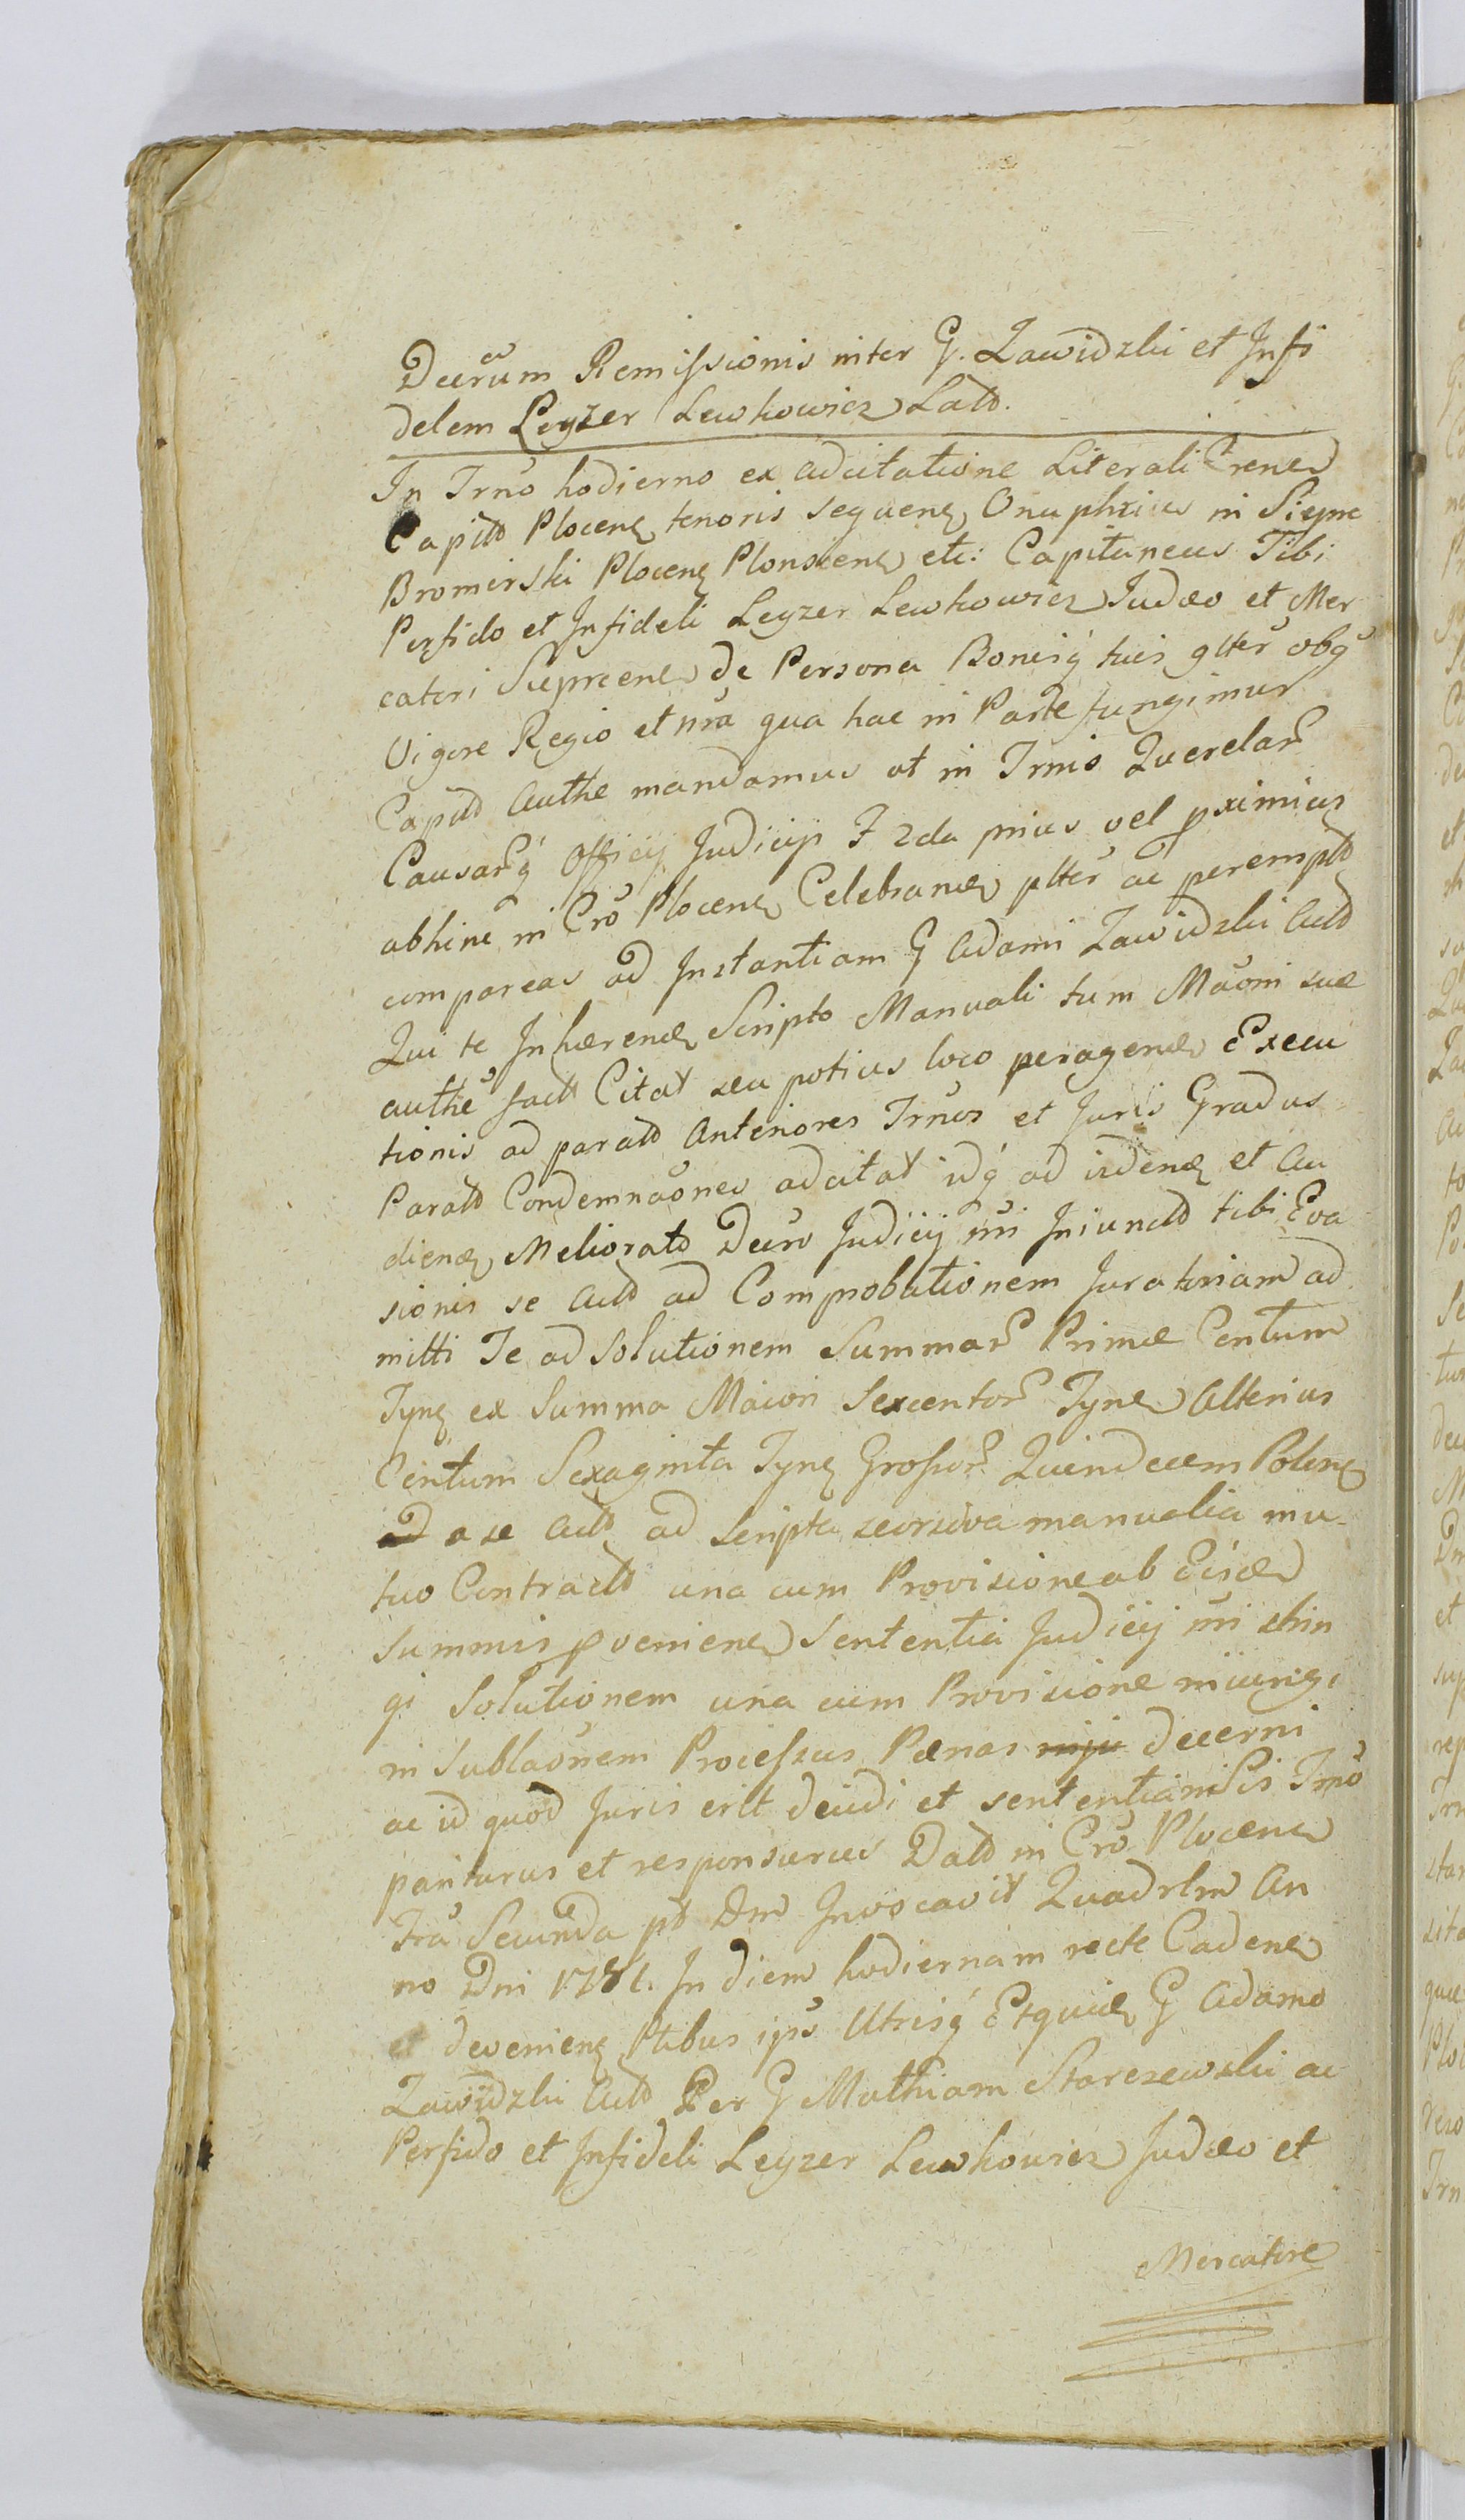 Decrum Remissionis inter G. Zawidzki et Infi
delem Leyzer Lewkowicz Latt.
In Trno hodierno ex adcitatione Literali Crene
Capitt Plocenę tenoris sequenę Onuphrius in Siepre
Bromirski Plocenę Plonscenę etc: Capitaneus Tibi
Perfido et Infideli Leyzer Lewkowicz Judæo et Mer
catori Sieprcenę de Persona Bonisq́ tuis glter obq
Vigore Regio et nra qua hac in Parte fungimur
Capitt Autthe mandamus ut in Trnis Querelar
Causarq́ Officij Judicij F 2da prius vel pximius
abhinc in Cro Plocenę Celebranę plter ac perempttę
compareas ad Instantiam G Adami Zawidzki Actt
Qui te Inhærenę Scripto Manuali tum Maoni suæ
autthe factt Citat seu potius loco peragenę Execu
tionis ad paratt Anteriores Trnos et Juris Gradus
Paratt Condemnaones adcitat idq́ ad videnę et Au
dienę Melioratt Decro Judicij nri Iniunctt tibi Eva
sionis se Actt ad Comprobationem Juratoriam ad
mitti Te ad Solutionem Summar Primæ Centum
Tynę ex Summa Maiori Sexcentor Tynę Alterius
Centum Sexaginta Tynę Grossor Quindecem Polonę
ad a se Acttę ad Scripta seorsiva manualia mu-
tuo Contractt una cum Provisione ab Eisdę
Summis pvenienę Sententia Judicij nri strin
gi Solutionem una cum Provisione iniungi
in Sublaonem Processus Pænas inju decerni
ac id quod Juris erit decidi et sententiari Sis Trno
pariturus et responsurus Datt in Cro Plocenę
Fra Secunda pt Dm Invocavit Quadrlm An
no Dni 1781. In diem hodiernam recte Cadenę
et devenienę Ptibus ipś Utrisq́ Et quidę G Adamo
Zawidzki Actt Per G Mathiam Starczewski ac
Perfido et Infideli Leyzer Lewkowicz Judæo et
Mercatore